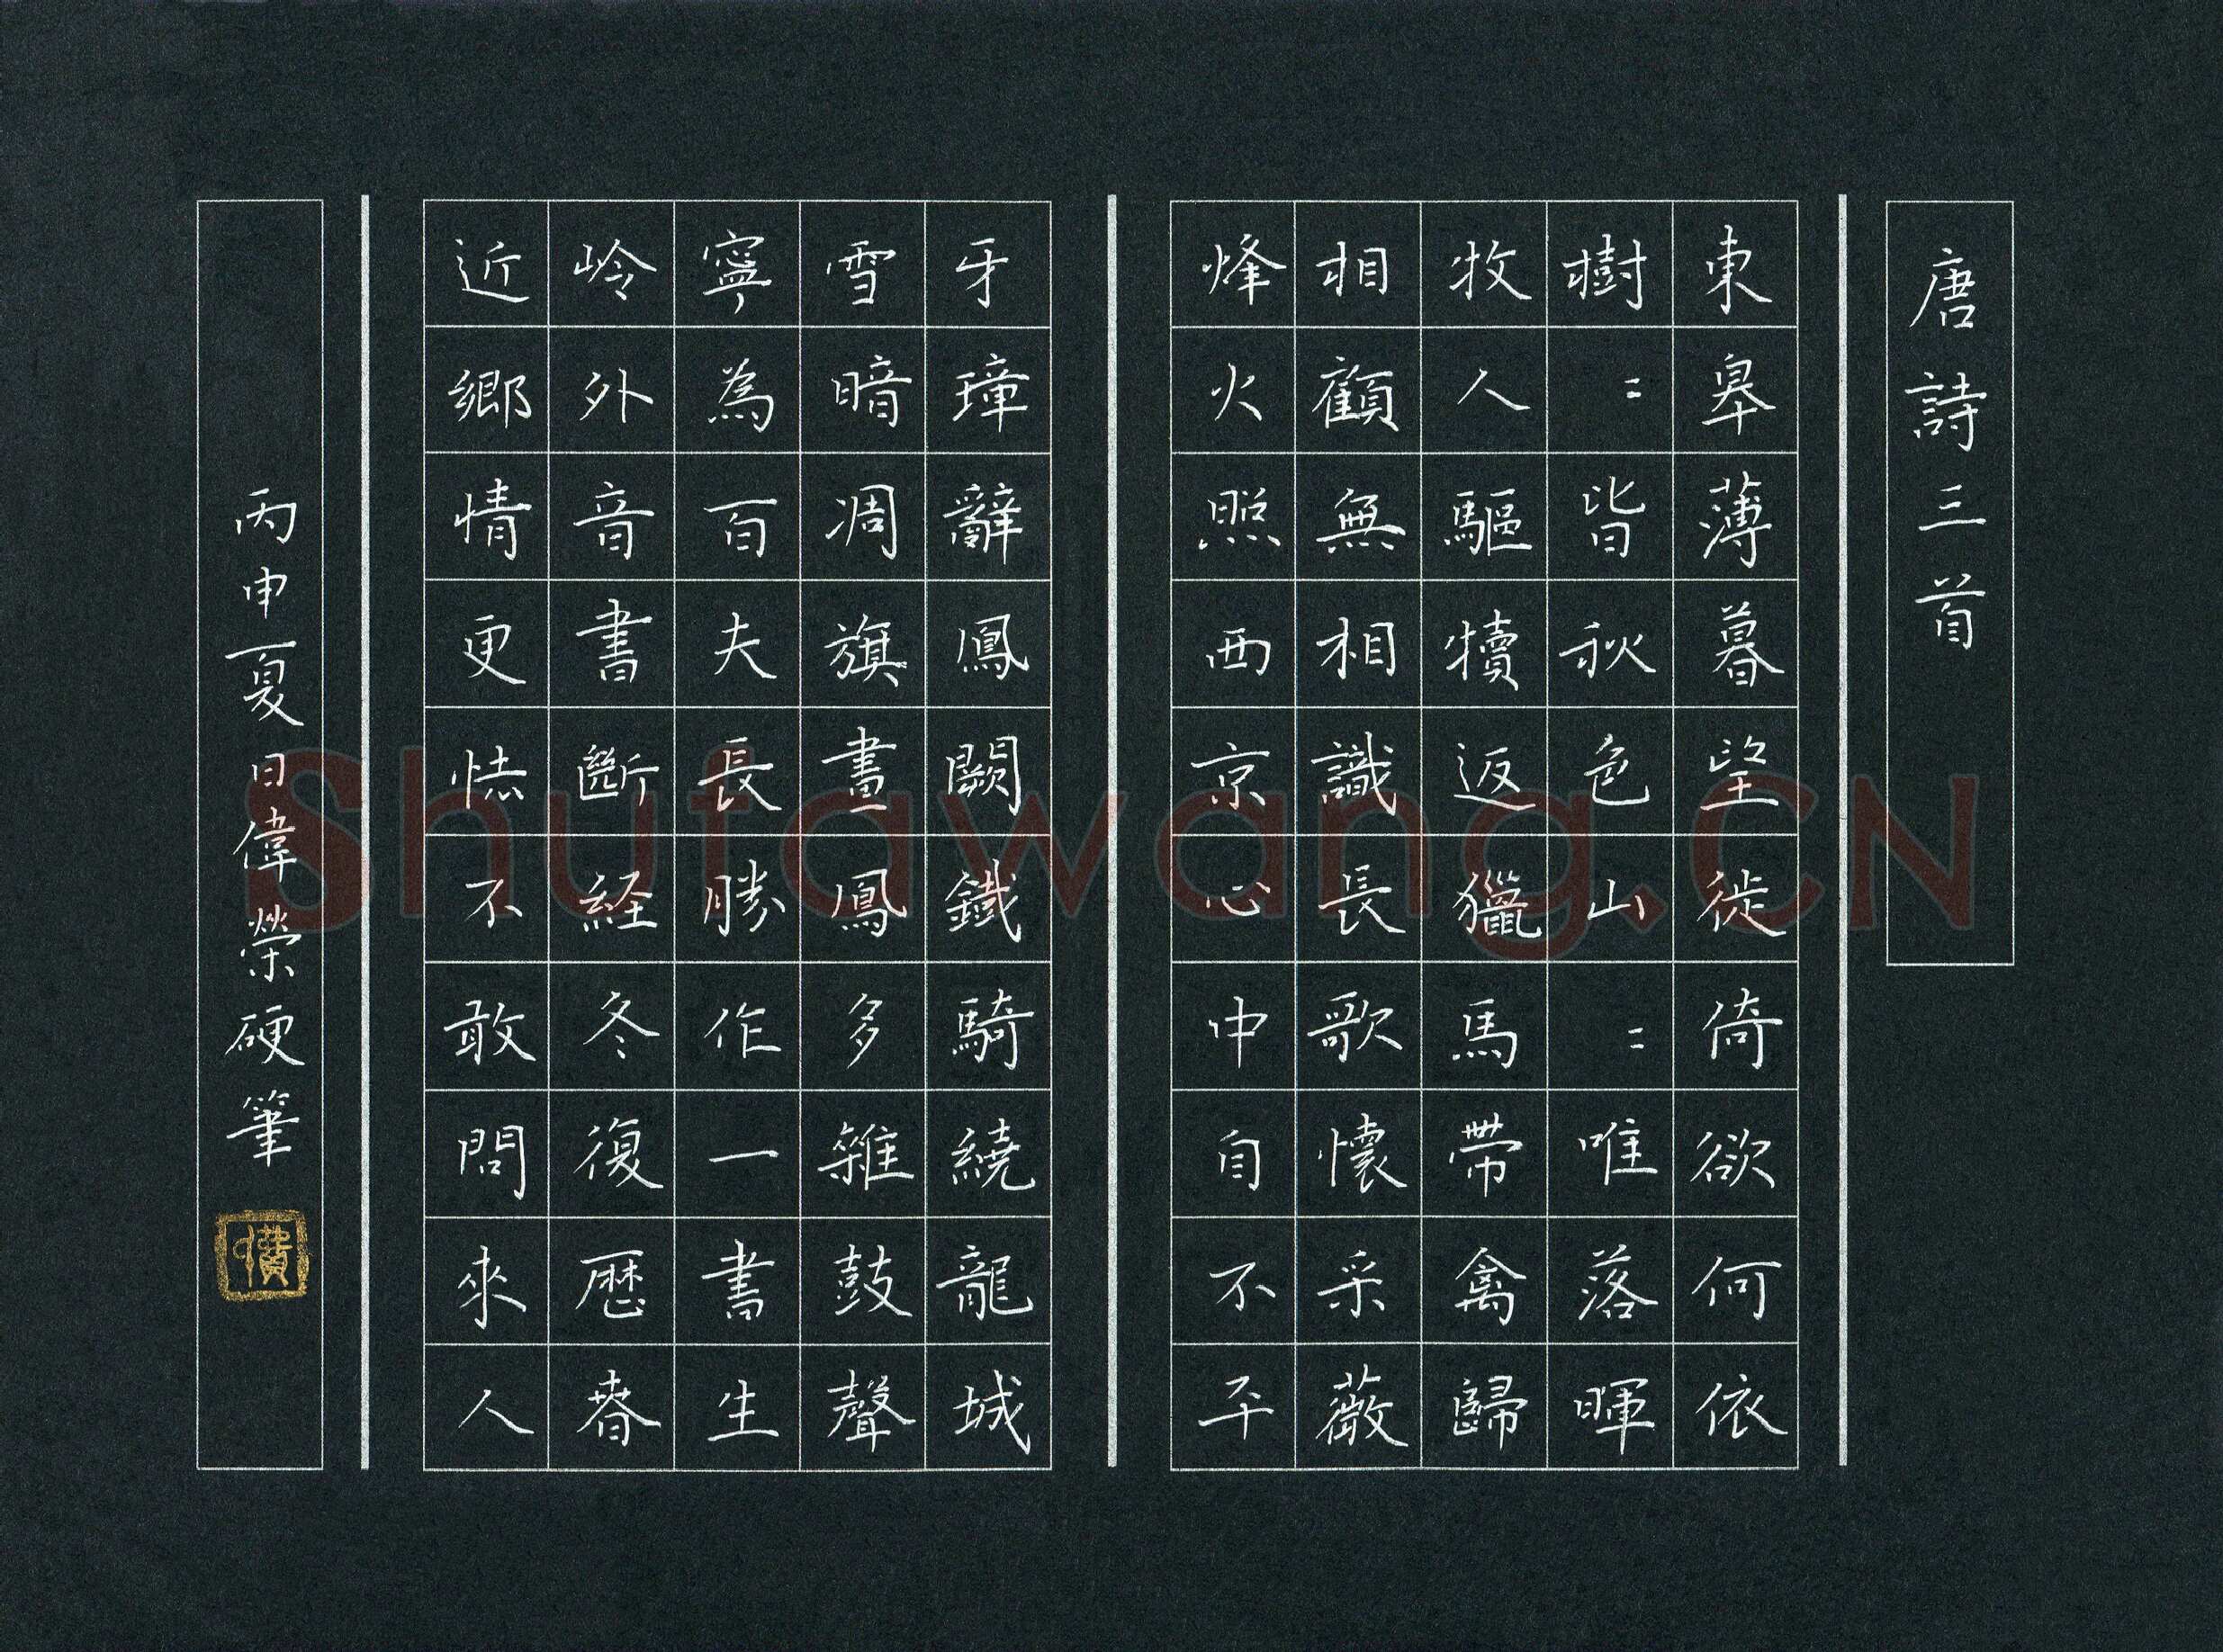 唐詩三首
東皋薄暮望徙倚欲何依
樹〻皆秋色山〻唯落暉
牧人驅犢返獵馬帶禽歸
相顧無相識長歌懷采薇
烽火照西京心中自不平
牙璋辭鳳闕鐵騎繞龍城
雪暗凋旗畫鳳多雜鼓聲
寧為百夫長勝作一書生
岭外音書斷経冬復歷春
近鄉情更怯不敢問來人
丙申夏日偉榮硬筆
Shufawang.CN